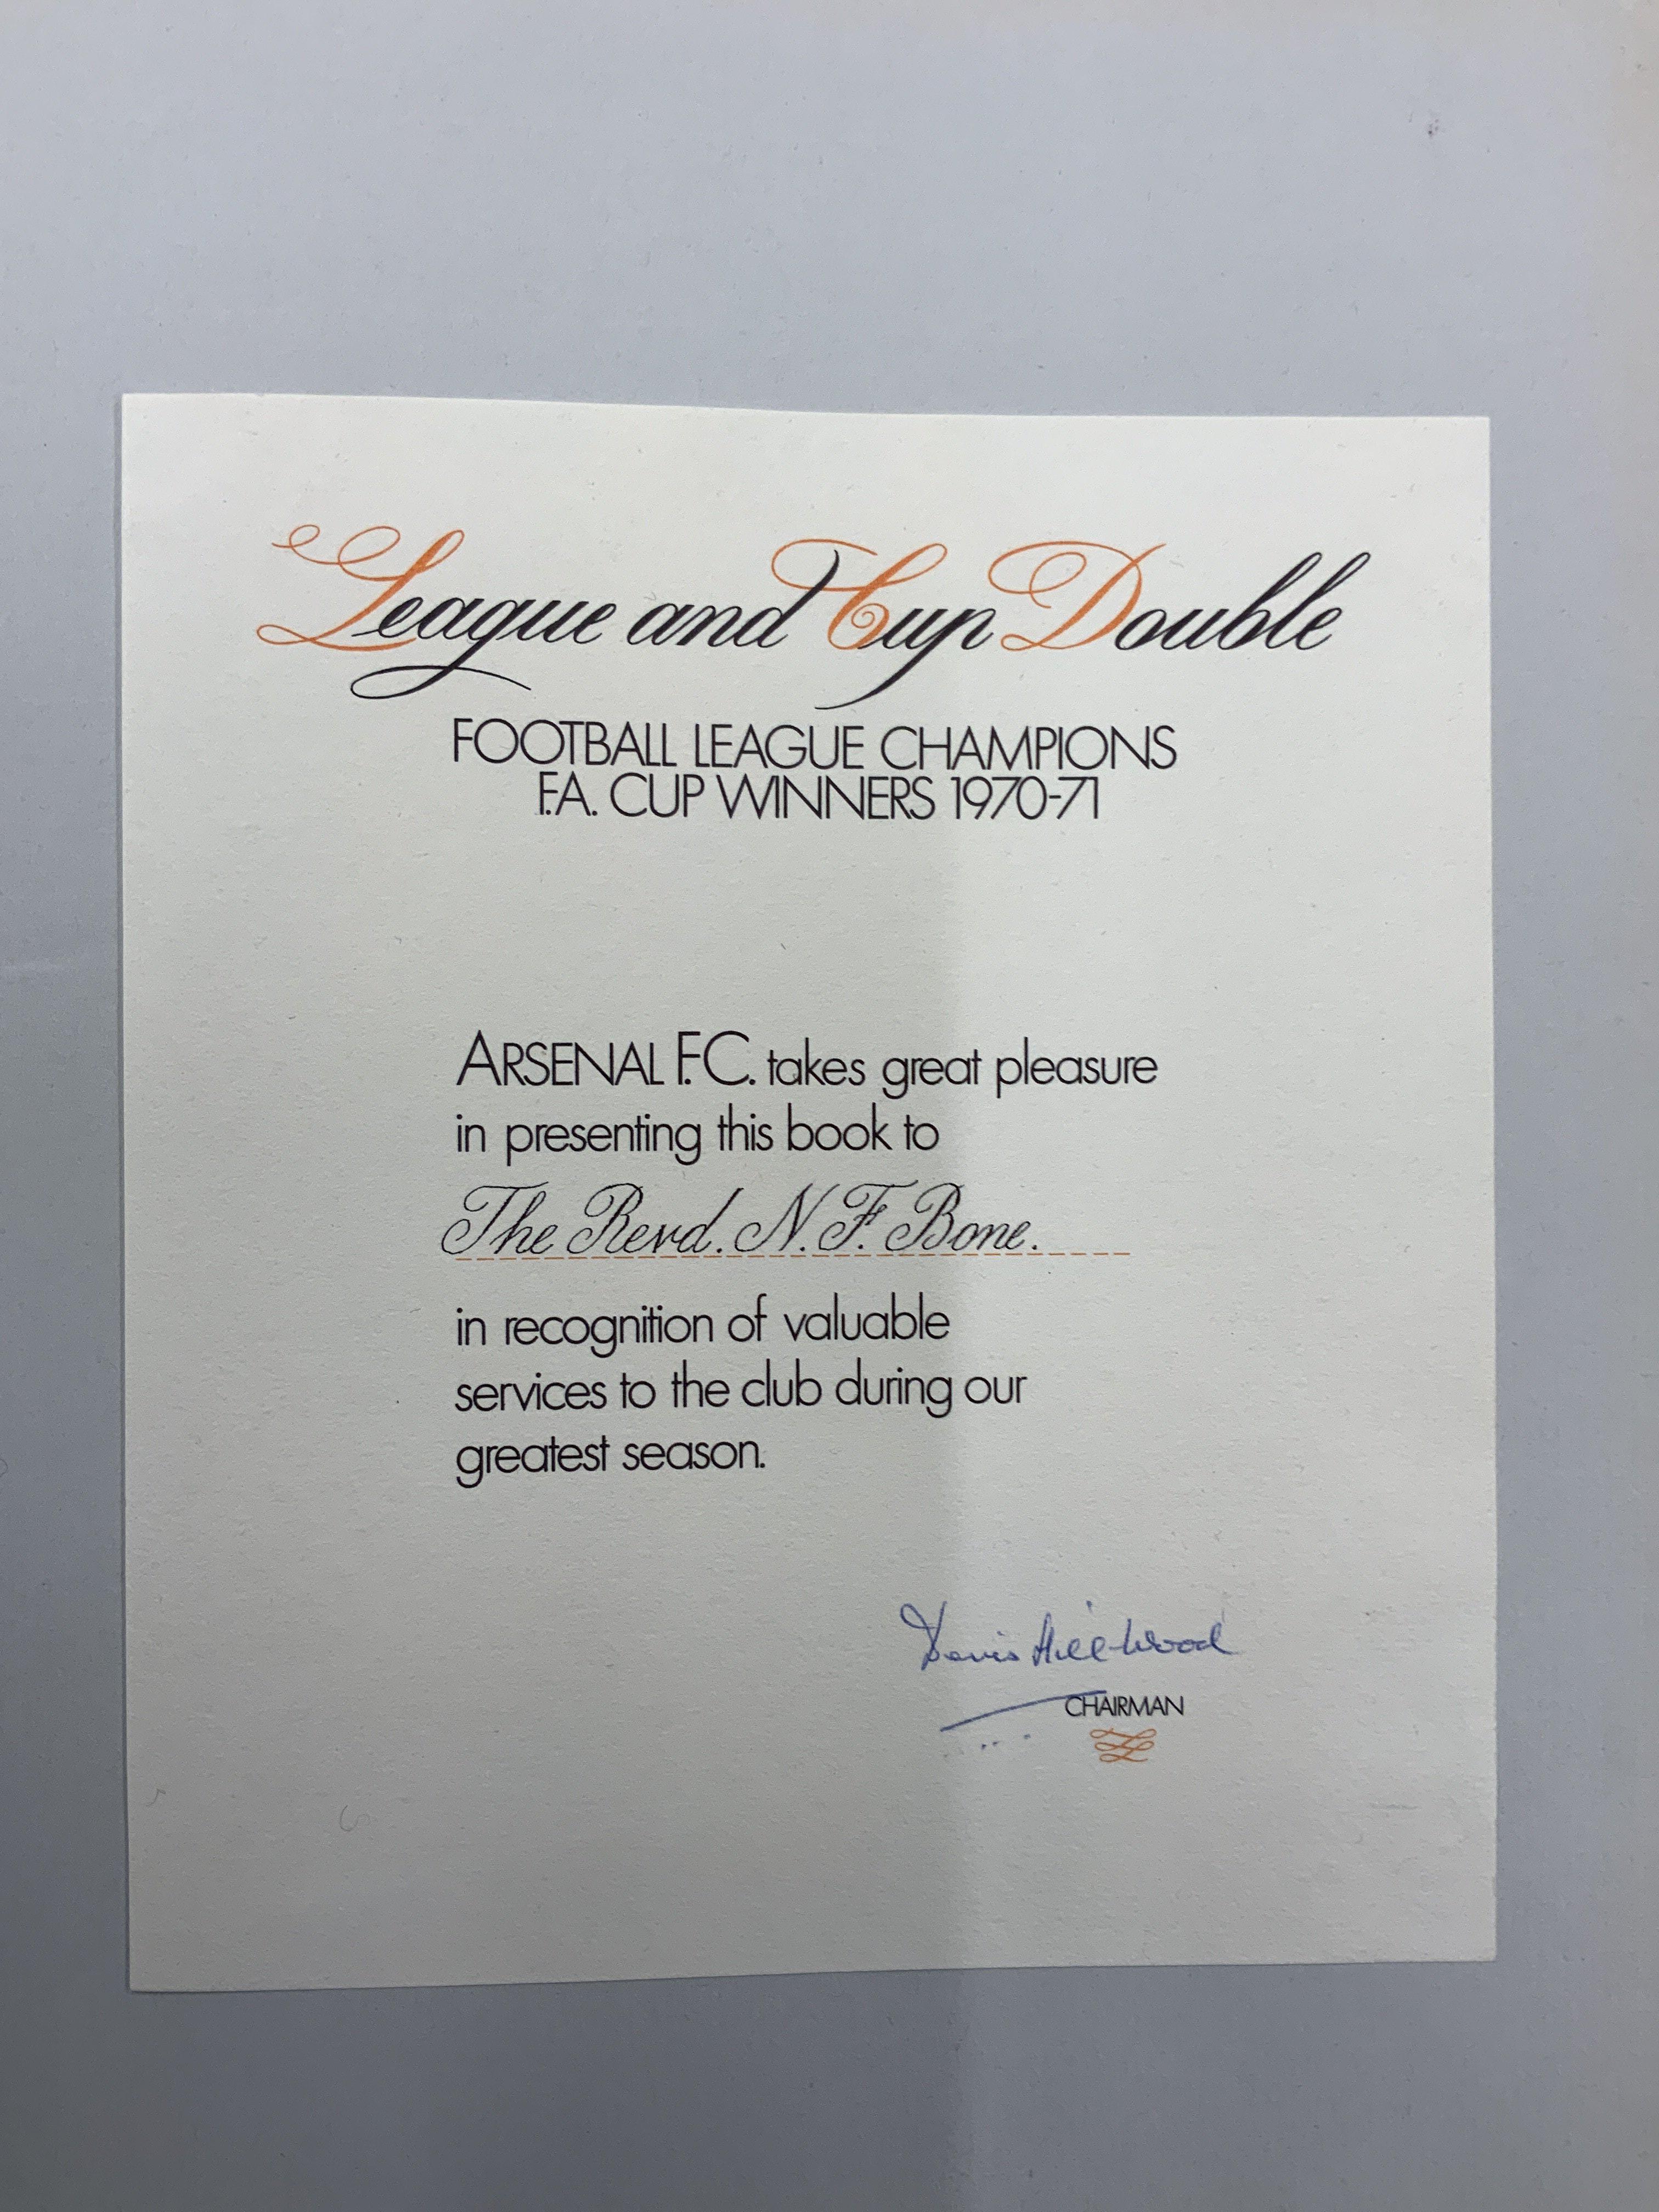 League and Cup Double
FOOTBALL LEAGUE CHAMPIONS
F.A. CUP WINNERS 1970-71
ARSENAL F.C. takes great pleasure
in presenting this book to
The Revd. N. F. Bone.
in recognition of valuable
services to the club during our
greatest season.
Denis Hill-Wood
CHAIRMAN